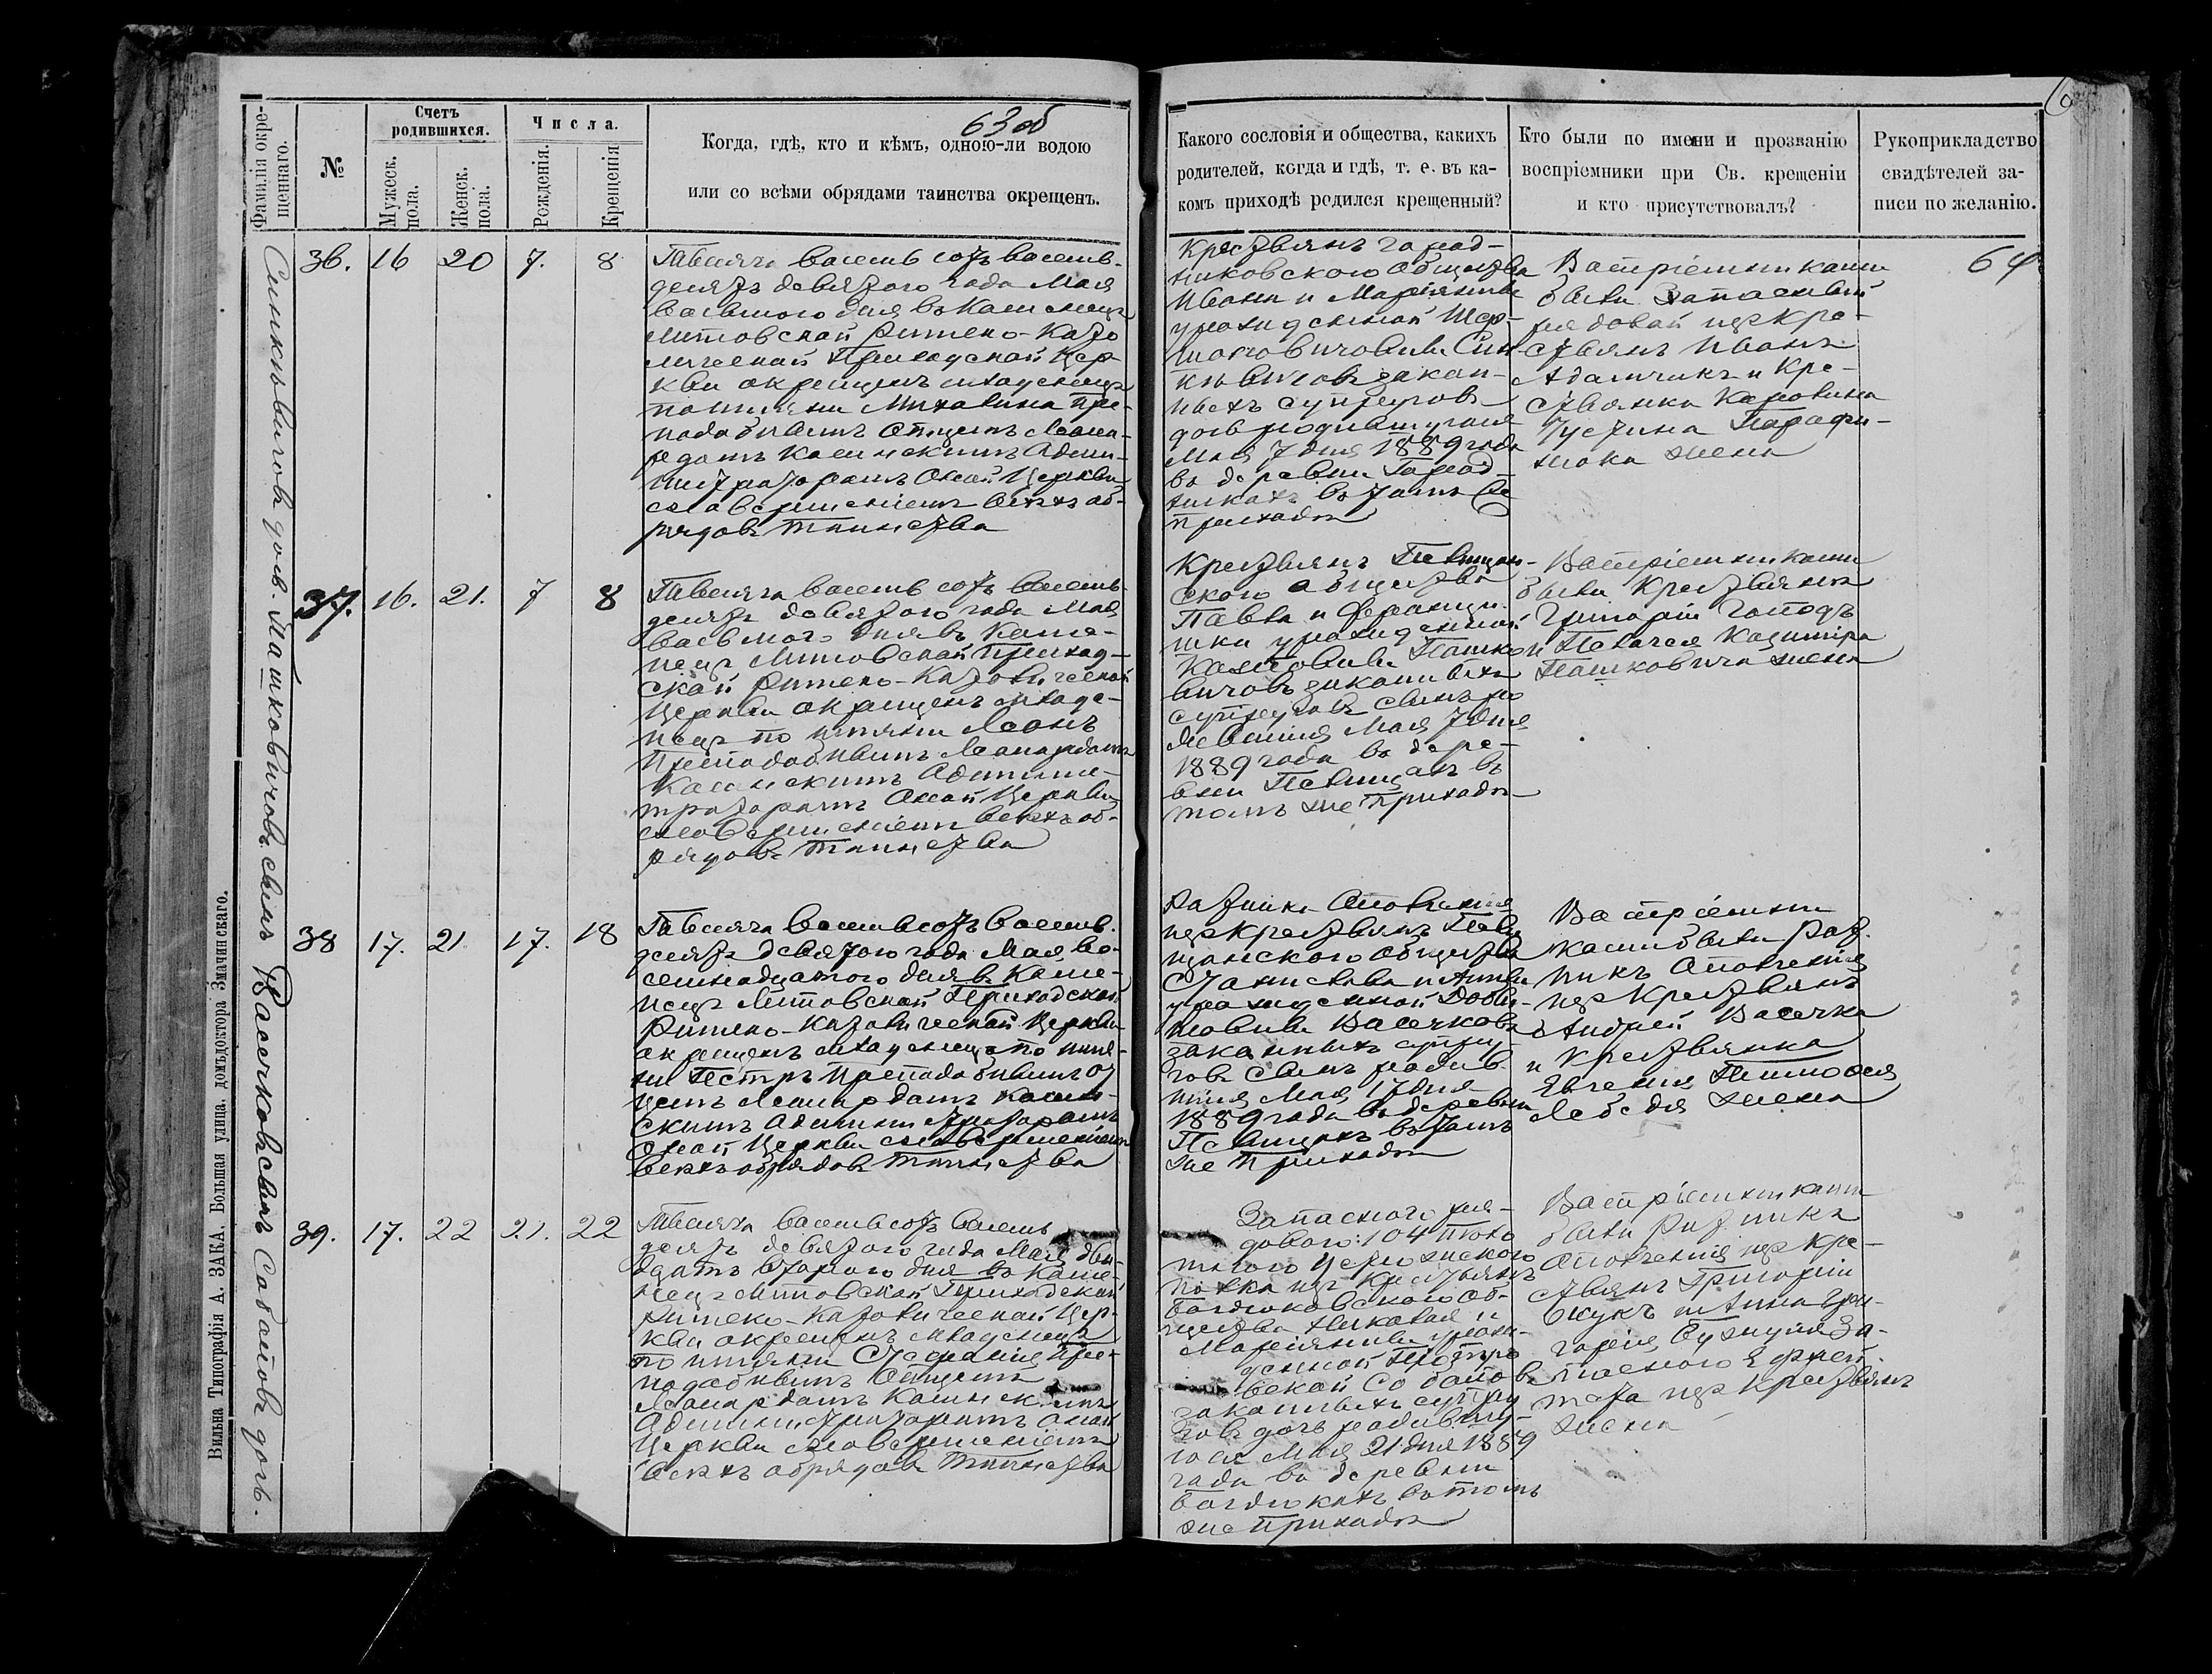 63 об
Фамилія окре-
щеннаго.
№
Счетъ
родившихся.
Мужеск.
пола.
Женск.
пола.
Числа.
Рожденія.
Крещенія
Когда, гдѣ, кто и кѣмъ, одною-ли водою
или со всѣми обрядами таинства окрещенъ.
Какого сословія и общества, какихъ
родителей, когда и гдѣ, т. е. въ ка-
комъ приходѣ родился крещенный?
Кто были по имени и прозванію
воспріемники при Св. крещеніи
и кто присутствовалъ?
Рукоприкладство
свидѣтелей за-
писи по желанію.
64
36. 16 20 7. 8
Тысяча восемь сотъ восемь-
десятъ девятого года Мая
восьмого дня въ Каменецъ
Литовской Римско-Като
лической Приходской Цер-
кви окрещенъ младенецъ
по имени Михалина пре-
подобнымъ Отцемъ Леона-
рдомъ Адми-
нистраторомъ оной Церкви
совершеніемъ всѣхъ об-
рядовъ Таинства
Крестьянъ Город-
никовского Общества
Ивана и Маріянны
урожденной
законныхъ супруговъ
дочь родившуюся
Мая 7 дня 1889 года
въ деревни Город-
никахъ въ томъ же
приходѣ
Воспріемниками
были Запасный
рядовой изъ кре-
стьянъ Иванъ
Адамчикъ и кре-
стьянка Каролина
жена
37. 16. 21. 7 8
Тысяча восемь сотъ восемь
десятъ девятого года Мая
восьмого дня въ Каме-
нецъ Литовской Приход-
ской Римско-Католической
Церкви окрещенъ младе-
нецъ по имени Леонъ
Преподобнымъ Леонардомъ
Админис-
траторомъ оной Церкви
совершеніемъ всѣхъ об-
рядовъ Таинства
Крестьянъ Пелищан-
ского общества
Павла и Францы-
шки урожденной
Пашко-
вичовъ законныхъ
супруговъ сынъ ро
дившійся Мая 7 дня
1889 года въ дере-
вни Пелищахъ въ
томъ же приходѣ
Воспріемниками
были Крестьянинъ
Григорій Господъ
и Пелагея Казиміра
Пашковича жена
38 17. 21. 17. 18
Тысяча восемь сотъ восемь.
десятъ девятого года Мая, во-
семнадцатого дня въ Каме-
нецъ Литовской Приходской
Римско-Католической Церкви
окрещенъ младенецъ по име-
ни Петръ Преподобнымъ От
цемъ Леонардомъ
Администраторомъ
оной Церкви совершеніемъ
всѣхъ обрядовъ Таинства
Ратника Ополченія
изъ крестьянъ Пели
щанского общества
Станислава и Анны
урожденной
Васечковъ
законныхъ супру-
говъ сынъ родив.
шійся Мая 17 дня
1889 года въ деревни
Пелищахъ въ томъ
же приходѣ
Воспріемни
ками были рат.
никъ Ополченія
изъ крестьянъ
Андрей Васечка
и крестьянка
Евгенія Тимофея
Лебедя жена
39. 17. 22 21. 22
Тысяча восемь сотъ восемь
десятъ девятого года Мая два
дцать второго дня въ Каме-
нецъ Литовской Приходской
Римско-Католической Цер-
кви окрещенъ младенецъ
по имени Стефанія Пре-
подобнымъ Отцемъ
Леонардомъ
Администраторомъ оной
Церкви совершеніемъ
всѣхъ обрядовъ Таинства
Запасного ря-
дового: 104 пѣхо
тного Устюжского
полка изъ крестьянъ
общества Николая и
Маріянны урож-
денной
Соболовъ
законныхъ супру
говъ дочь родившу-
юся Мая 21 дня 1889
года въ деревни
въ томъ
же приходѣ
Воспріемниками
были Ратникъ
Ополченія изъ кре-
стьянъ Григорій
и Анна Гри-
горія За-
пасного Ефрей-
тора изъ крестьянъ
жена
дочь. Пашковичовъ сынъ Васечковъ сынъ Соболовъ дочь.
Вильна Типографія А. ЗАКА, Большая улица, домъ доктора Змачинскаго.